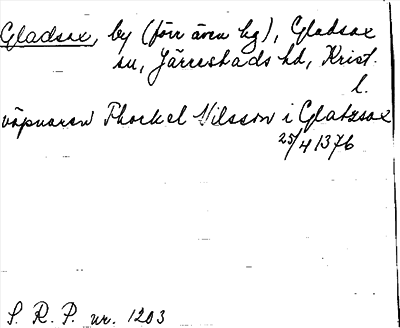 Gladsax, by (förr även kg), Gladsax
sn, Järrestads hd, Krist.
l.
väpnaren Thorkel Nilsson i Glatzsax
25/4 1376
S. R. P. nr. 1203